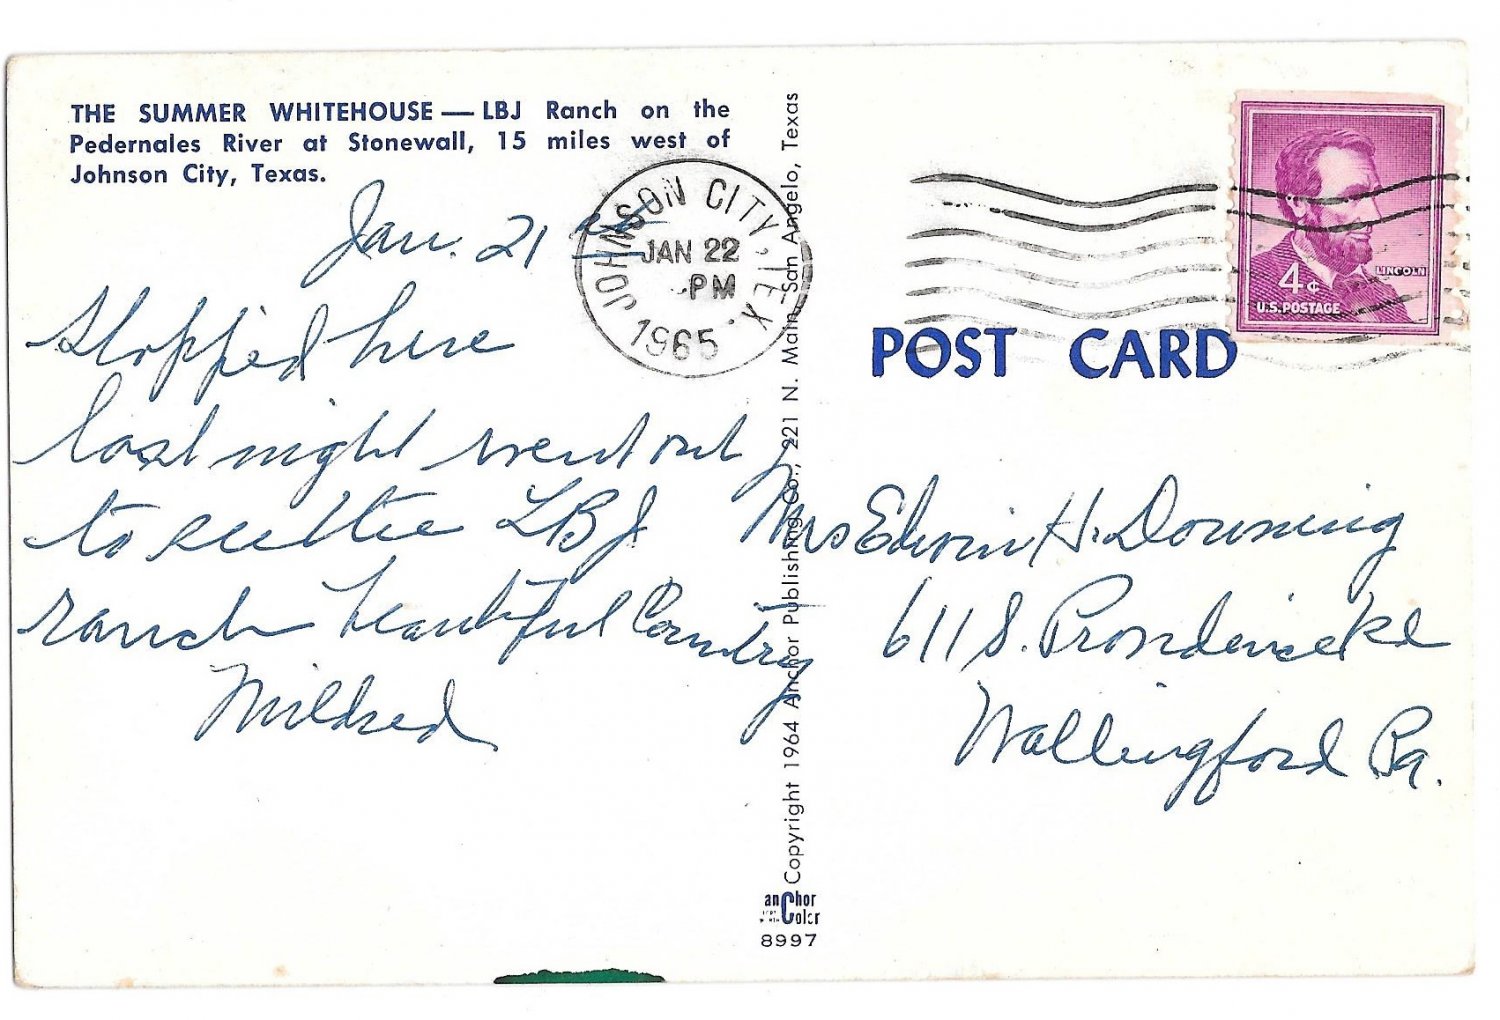 THE SUMMER WHITEHOUSE — LBJ Ranch on the
Pedernales River at Stonewall, 15 miles west of
Johnson City, Texas.
Jan. 21
Stopped here
last night went out
to see the LBJ
ranch beautiful Country
Mildred
JOHNSON CITY, TEX.
JAN 22
PM
1965
Copyright 1964 Anchor Publishing Co., 221 N. Main, San Angelo, Texas
anChor
Color
8997
LINCOLN
4¢
U.S. POSTAGE
POST CARD
Mrs Edwin H. Downing
611 S. Providence Rd
Wallingford Pa.